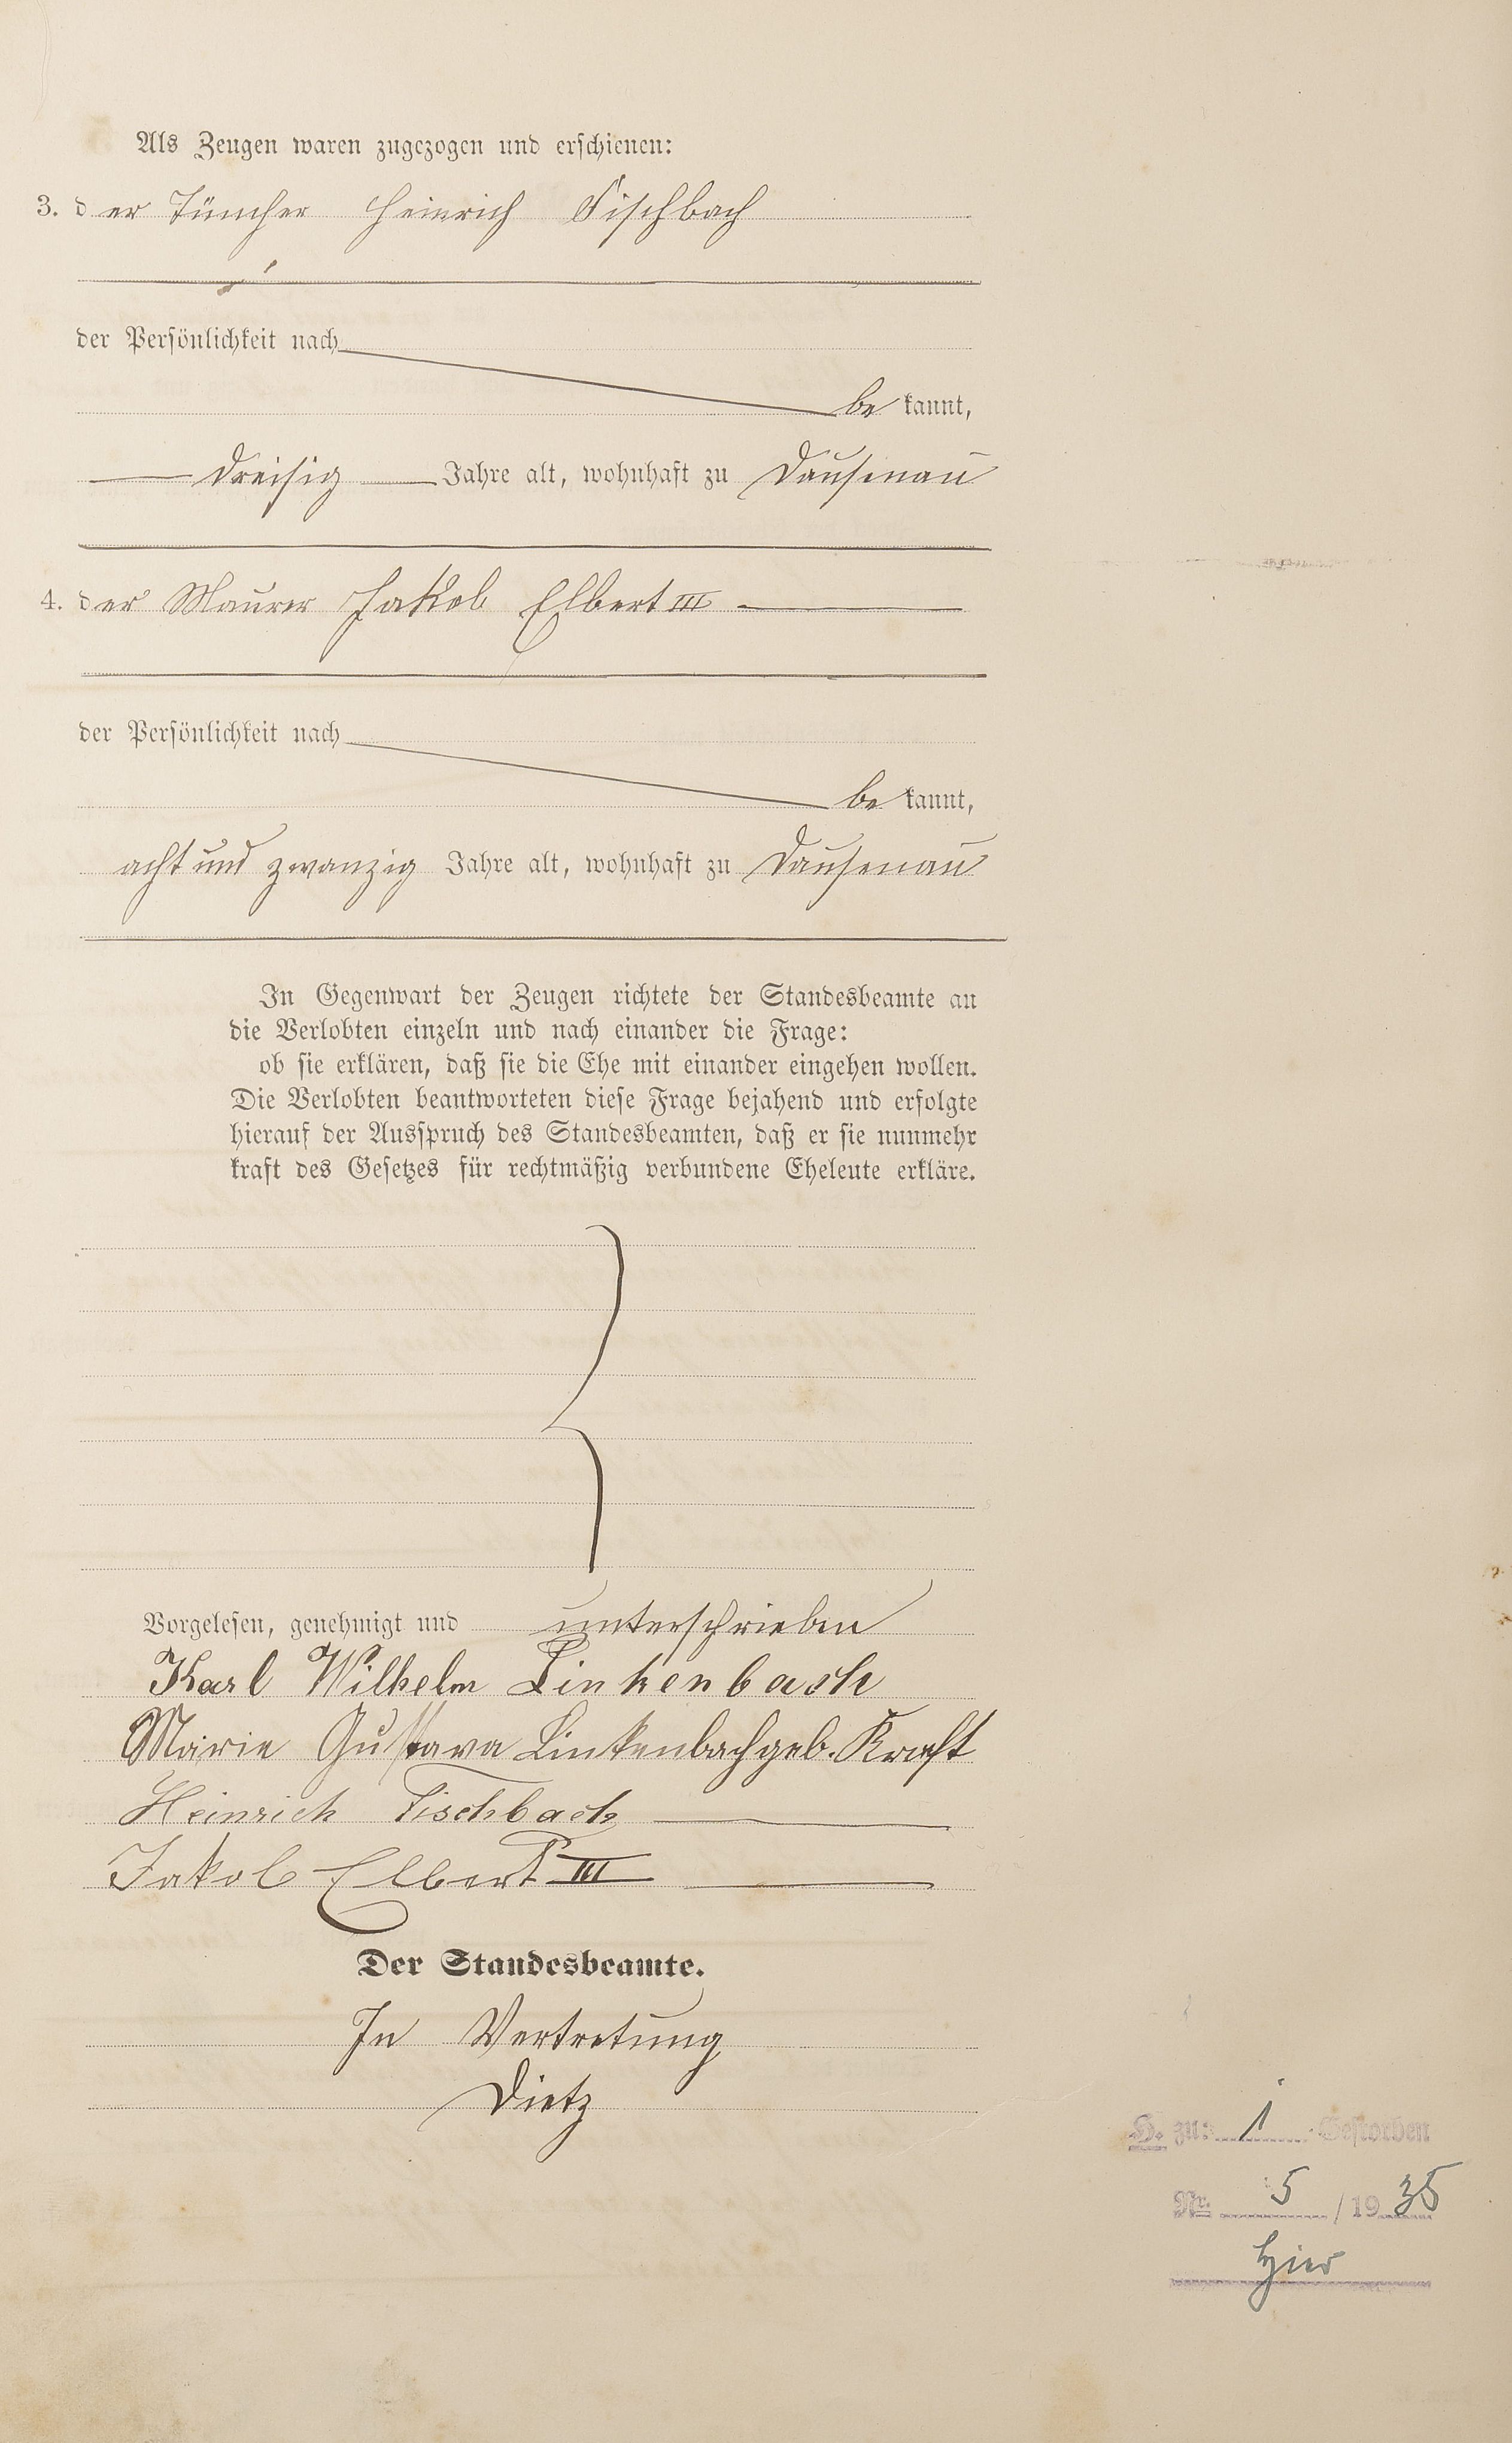 Als Zeugen waren zugezogen und erschienen:
3. der Tüncher Heinrich Fischbach
der Persönlichkeit nach
bekannt,
dreisig Jahre alt, wohnhaft zu Dausenau
4. der Maurer Jakob Elbert III
der Persönlichkeit nach
bekannt,
acht und zwanzig Jahre alt, wohnhaft zu Dausenau
In Gegenwart der Zeugen richtete der Standesbeamte an
die Verlobten einzeln und nach einander die Frage:
ob sie erklären, daß sie die Ehe mit einander eingehen wollen.
Die Verlobten beantworteten diese Frage bejahend und erfolgte
hierauf der Ausspruch des Standesbeamten, daß er sie nunmehr
kraft des Gesetzes für rechtmäßig verbundene Eheleute erkläre.
Vorgelesen, genehmigt und unterschrieben
Karl Wilhelm Linkenbach
Marie Gustava Linkenbach geb. Kraft
Heinrich Fischbach
Jakob Elbert III
Der Standesbeamte.
In Vertretung
Dietz
H. zu: 1 Gestorben
Nr. 5 / 1935
hier